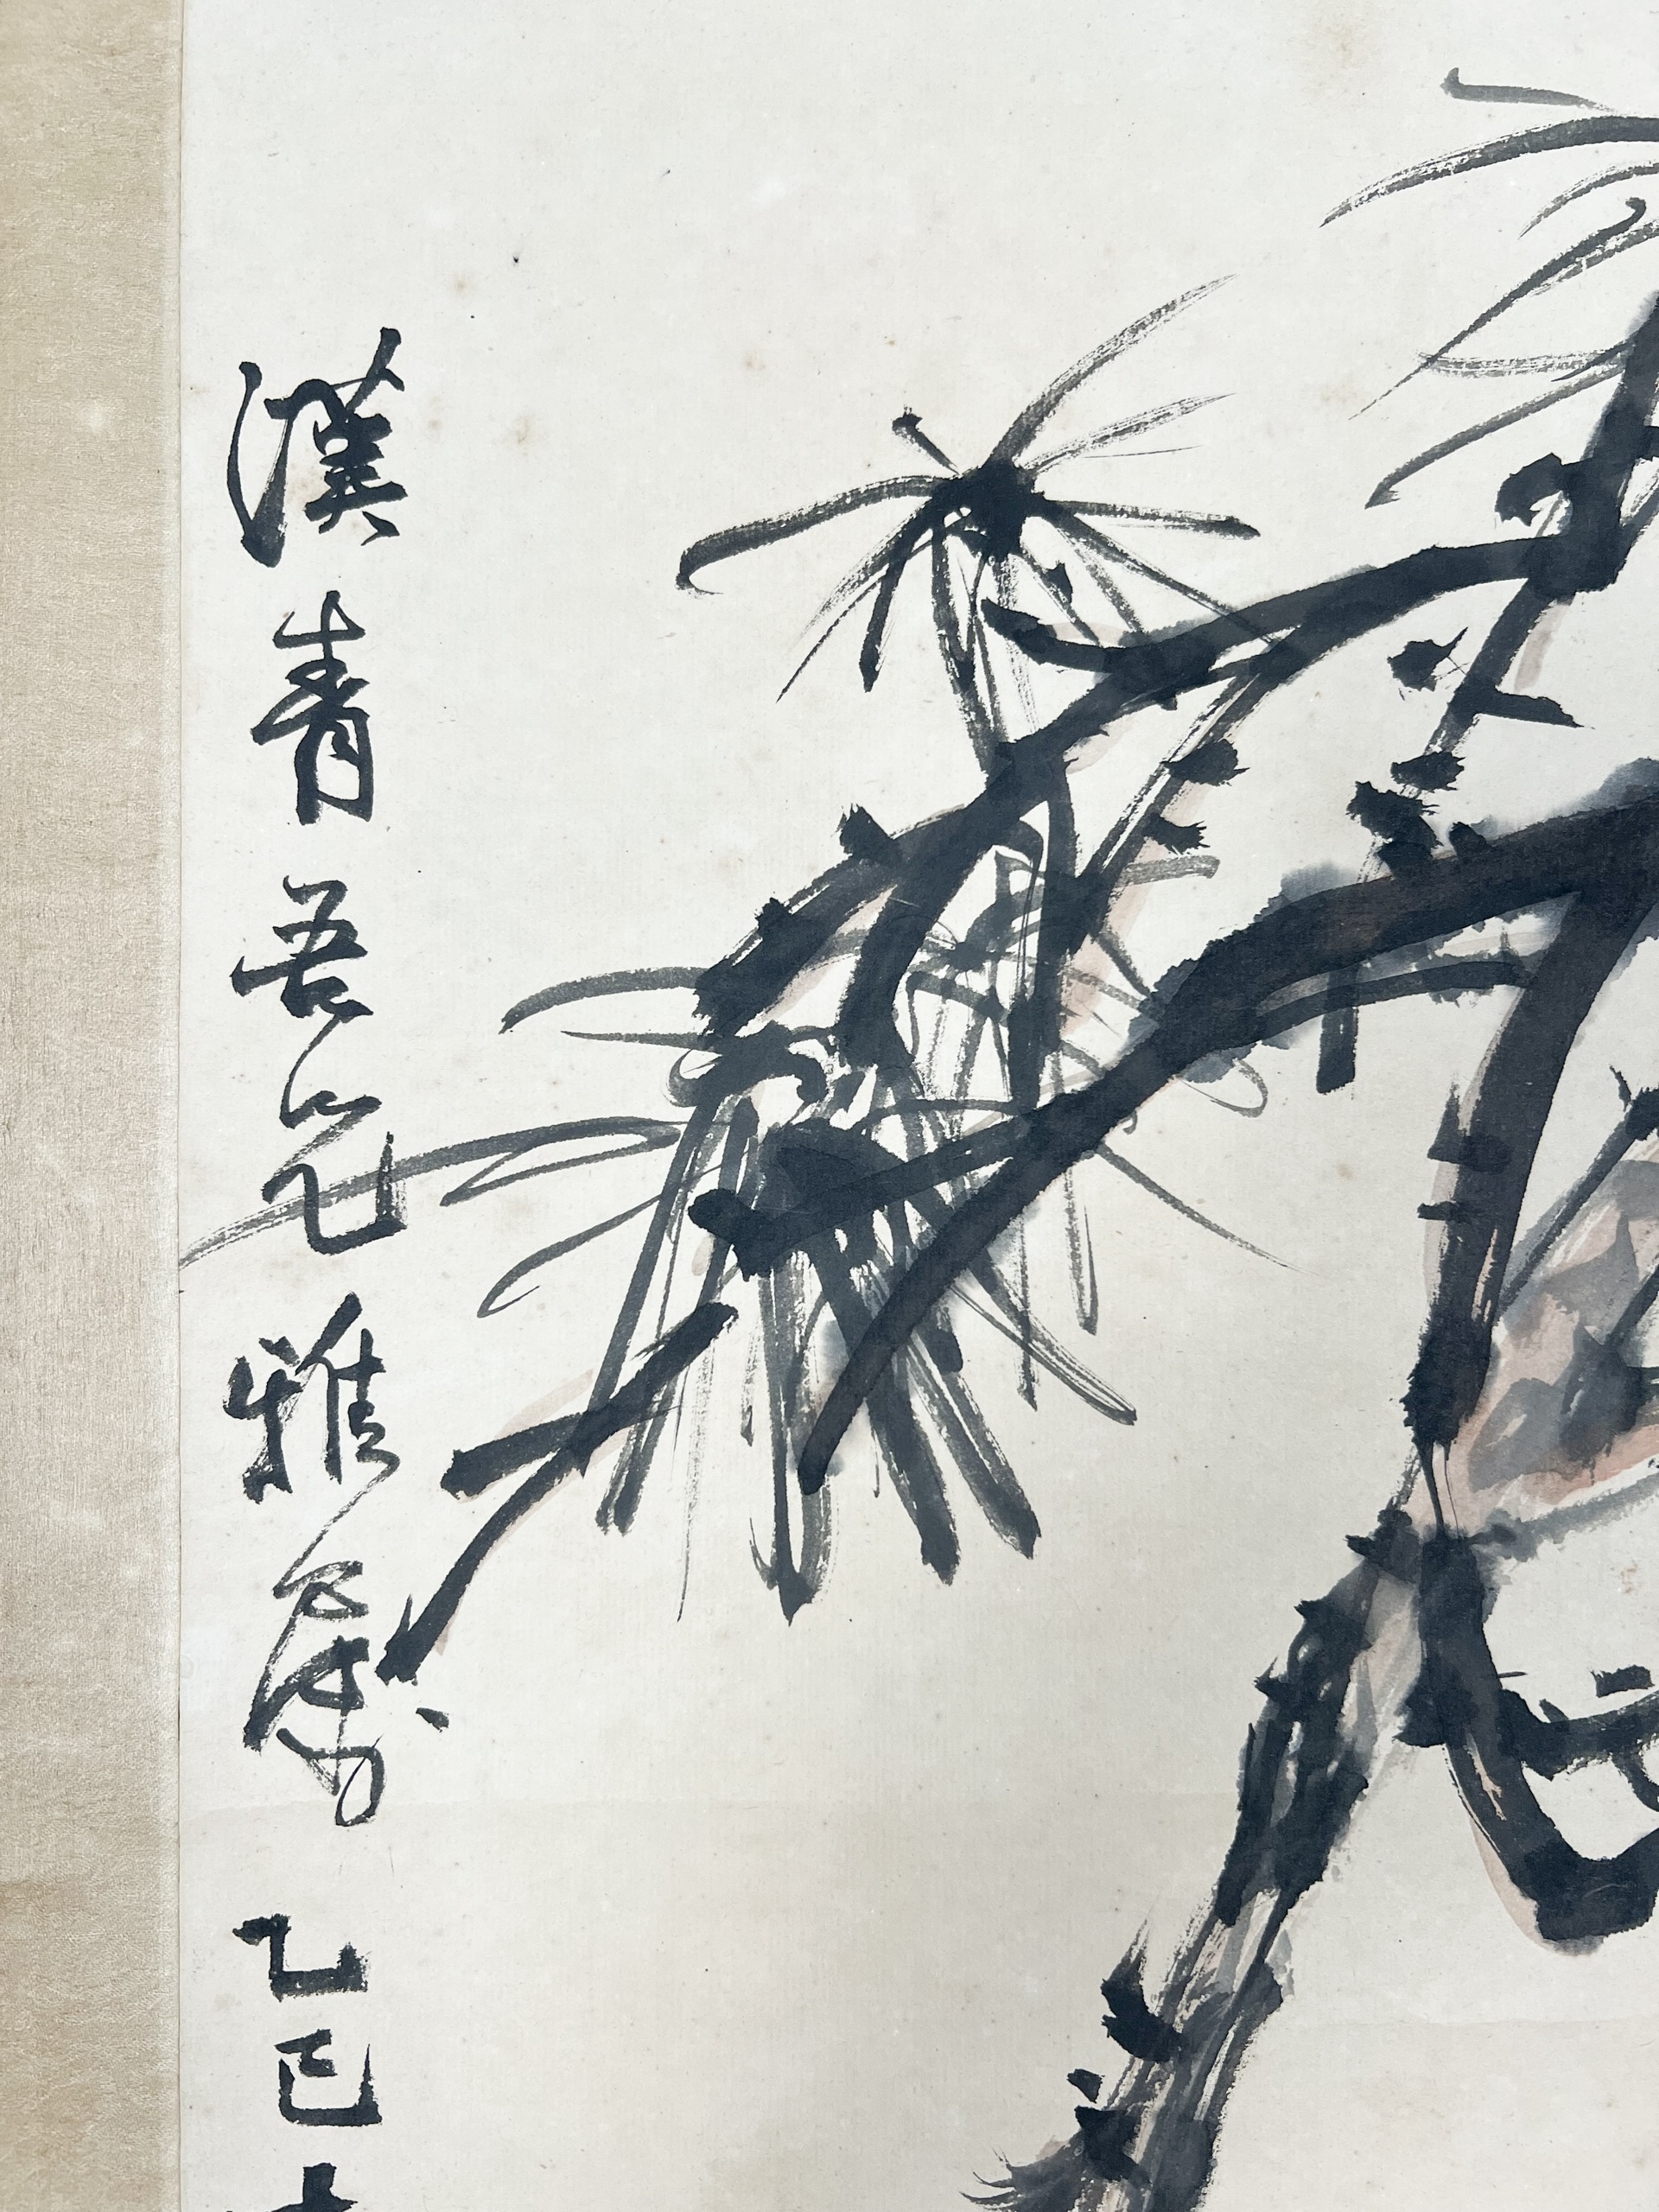 漢青吾兄雅屬乙巳